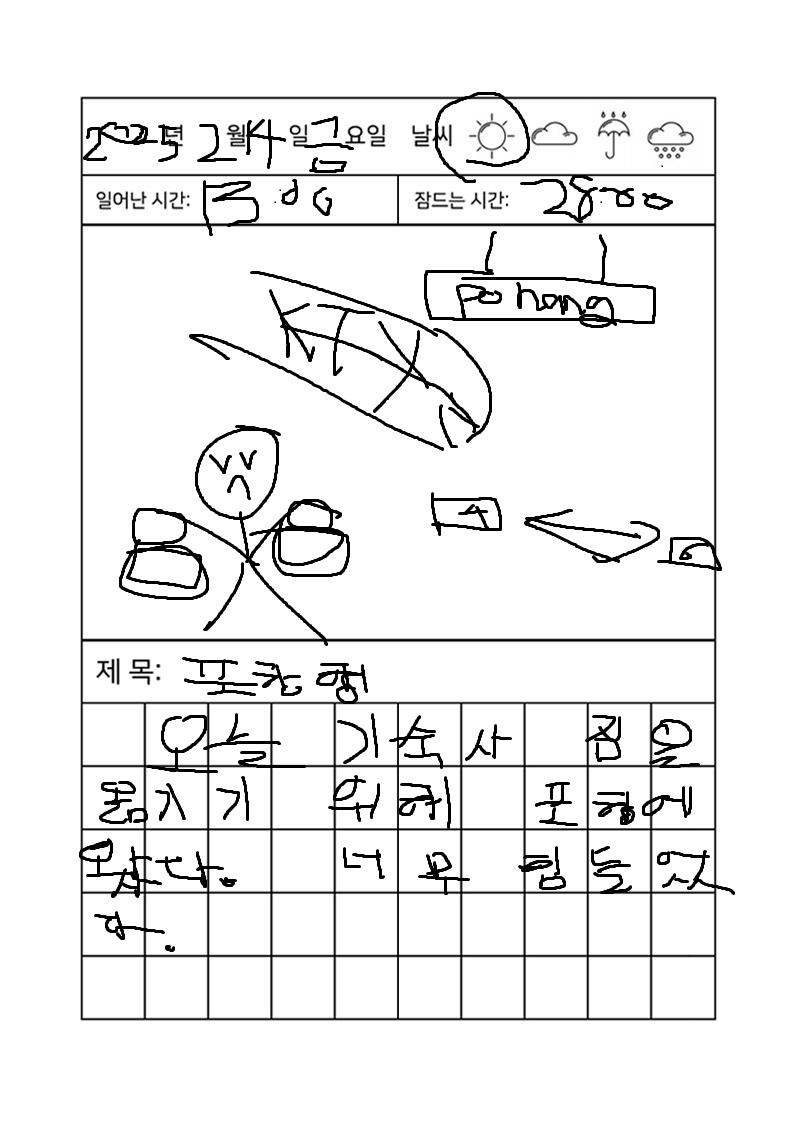 2025년 2월 14일 금요일 날씨
일어난 시간: 13:00
잠드는 시간: 28:00
Pohang
KTX
4
6
제 목: 포항행
오늘 기숙사 짐을
옮기기 위해 포항에
왔다. 너무 힘들었
다.